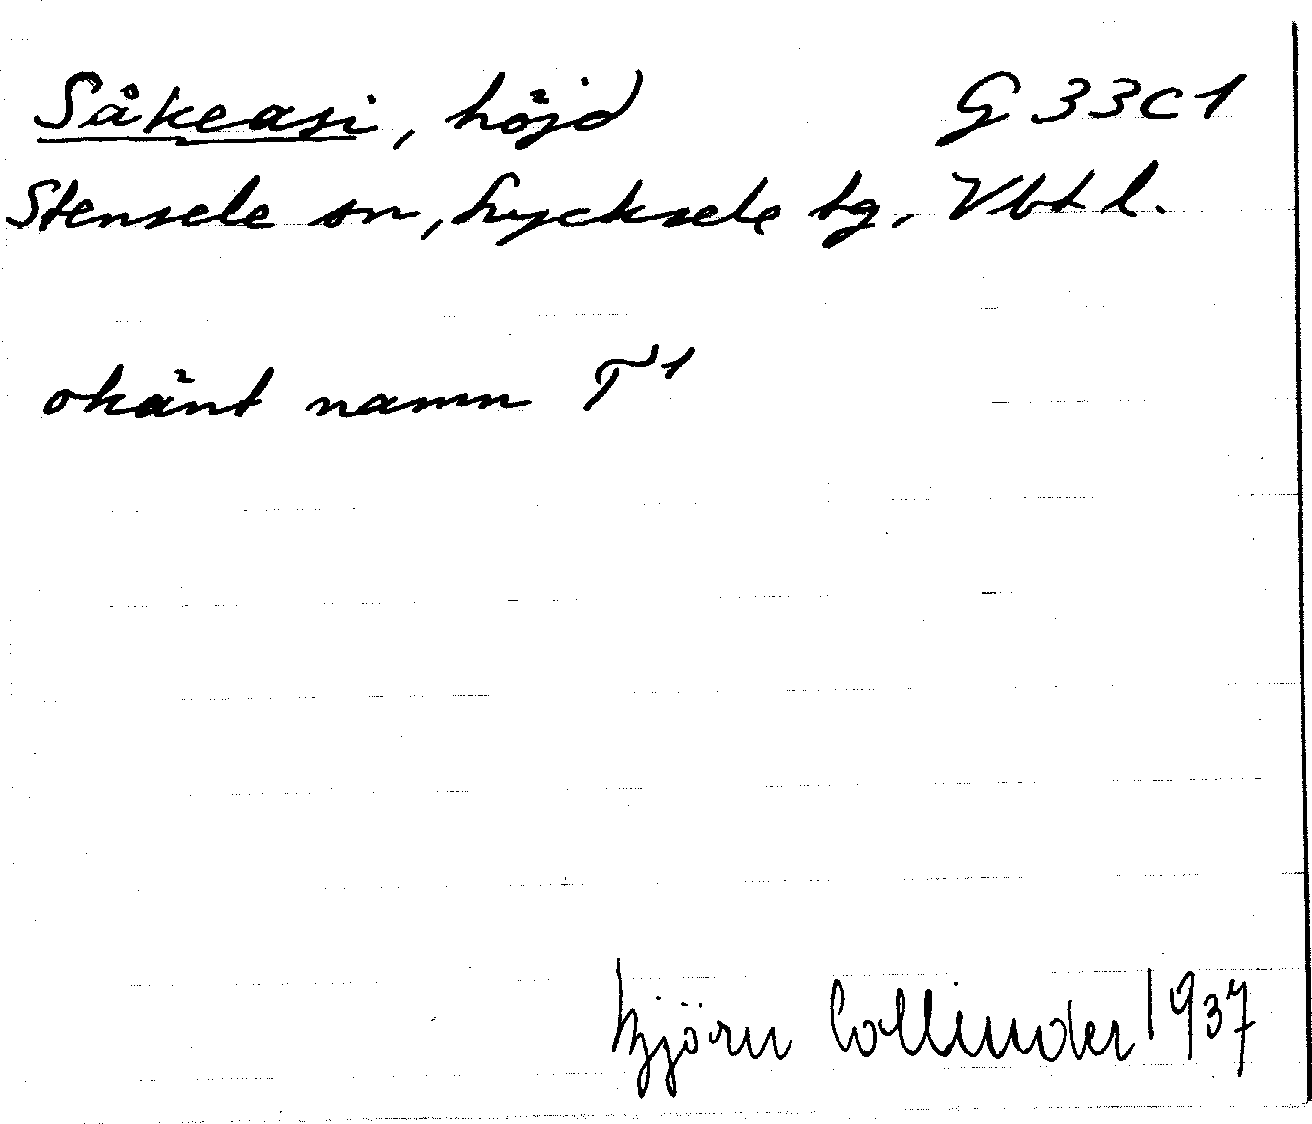 Såkeasi, höjd G 33c1
Stensele sn, Lycksele tg, Vbtl.
okänt namn T1
Björn Collinder 1937